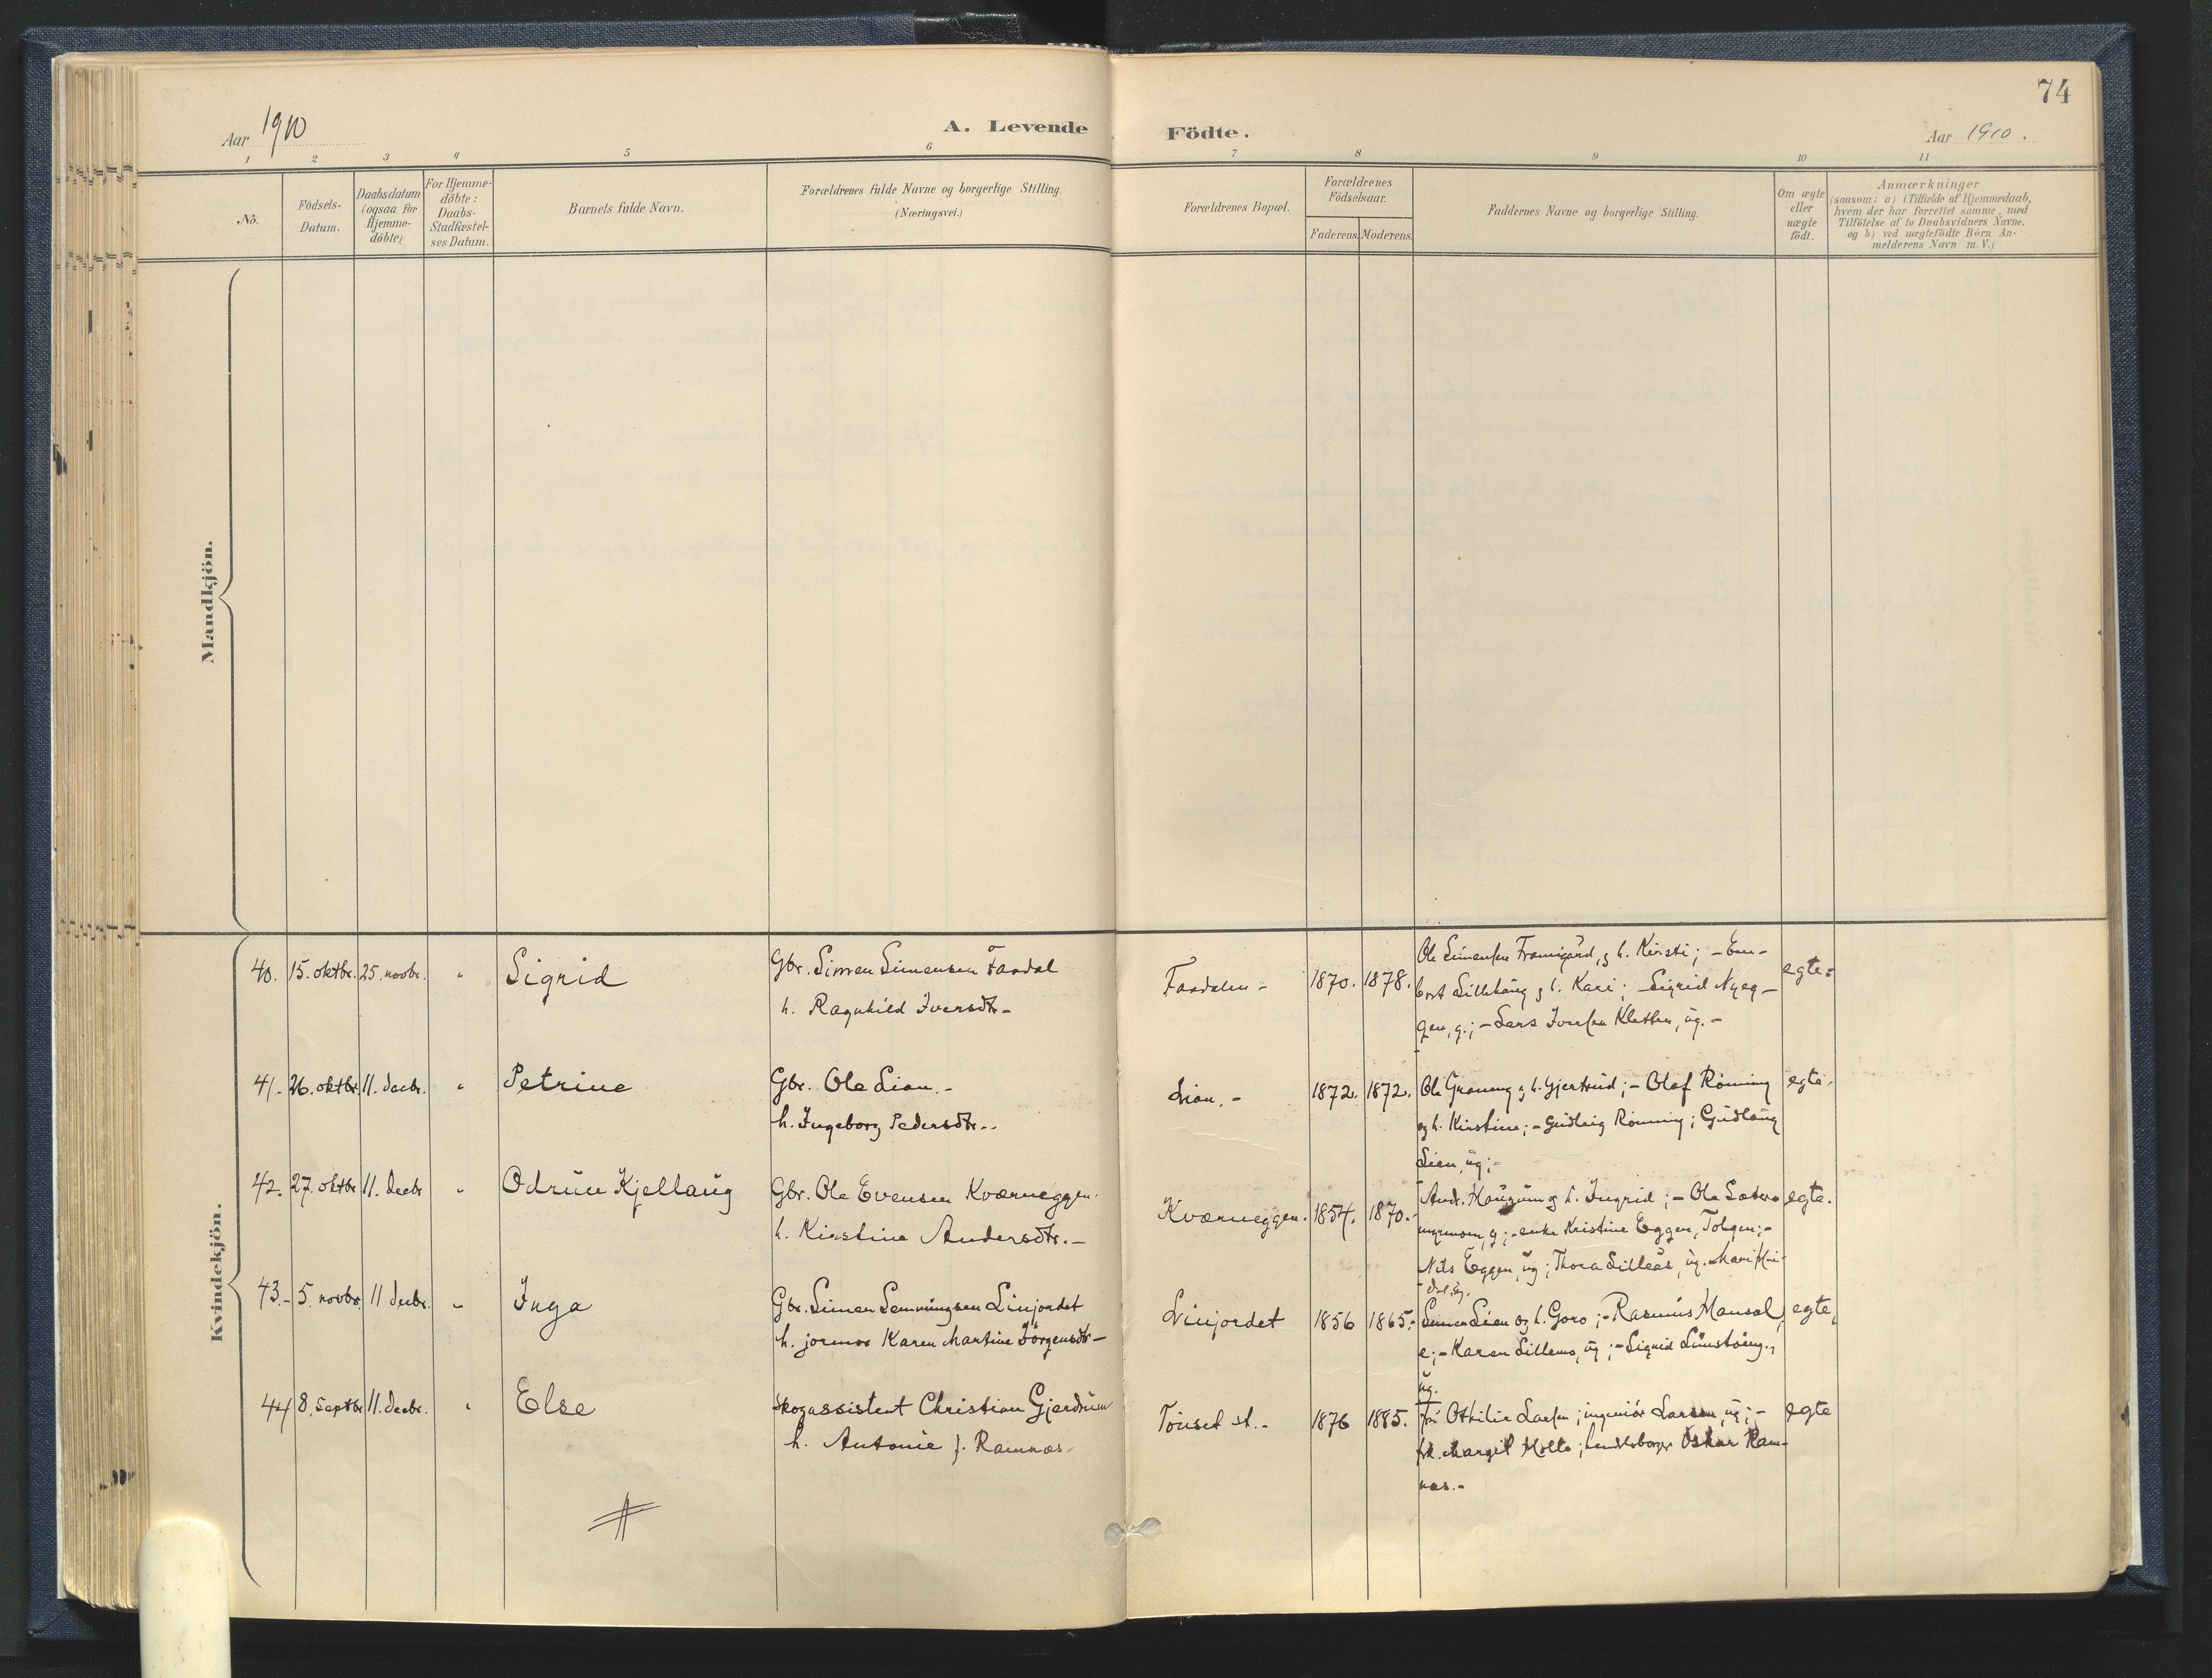 74
Aar 1910
A. Levende Födte.
Aar 1910.
1 2 3 4 5 6 7 8 9 10 11
No.
Födsels-
Datum.
Daabsdatum
(ogsaa for
Hjemme-
döbte)
For Hjemme-
döbte:
Daabs-
Stadfæstel-
ses Datum.
Barnets fulde Navn.
Forældrenes fulde Navne og borgerlige Stilling.
(Næringsvei.)
Forældrenes Bopæl.
Forældrenes
Födselsaar.
Faderens. Moderens.
Faddernes Navne og borgerlige Stilling.
Om ægte
eller
uægte
födt.
Anmærkninger
(saasom: a) i Tilfælde af Hjemmedaab,
hvem der har forrettet samme, med
Tilföielse af to Daabsvidners Navne.
og b) ved uægtefödte Börn An-
melderens Navn m. V.)
Mandkjön.
Kvindekjön.
40. 15. oktbr. 25. novbr. " Sigrid
Gbr. Simen Simensen Faadal
h. Ragnhild Iversdtr.-
Faadalen - 1870. 1878.
Ole Simensen Framigård, g h. Kirsti; - Em-
bret Lillehaug g h. Kari; - Sigrid Nyeg-
gen, g.; - Lars Iversen Kletten, ug. -
egte-
41- 26. oktbr. 11. decbr. " Petrine
Gbr. Ole Lian. -
h. Ingeborg Pedersdtr. -
Lian. - 1872. 1872.
Ole g h. Gjertrud; - Olof Rönning
og h. Kirstine; - Gudlaug Rönning; Gudlaug
Lien, ug; -
egte.
42. 27. oktbr 11. decbr " Odrun Kjellaug
Gbr. Ole Evensen Kværneggen.
h. Kirstine Andersdtr. -
Kværneggen. 1854. 1870.-
Andr. Haugum g h. Ingrid; - Ole Sæter-
g; - enke Kristine Eggen, Tolgen; -
Nils Eggen, ug; Thora Lilleås, ug. - Mari
egte.
43.- 5. novbr. 11 decbr. " Inga
Gbr. Simen Lemmingsen Linjordet
h. jormor Karen Martine Jörgensdtr -
Linjordet 1856 1865.-
Simen Lien og h. Goro; - Rasmus Hansal,
e; - Karen Lillemo, ug; - Sigrid
ug.
egte,
44 8. septbr 11. decbr. " Else
Skogassistent Christian Gjerdrum
h. Antonie f. Ramnæs.
Tönset st. - 1876 1885.
Fru Othilie Larsen; ingeniör Larsen, ug; -
frk. Margit Holte; handelsborger Oskar Ram-
næs. -
egte